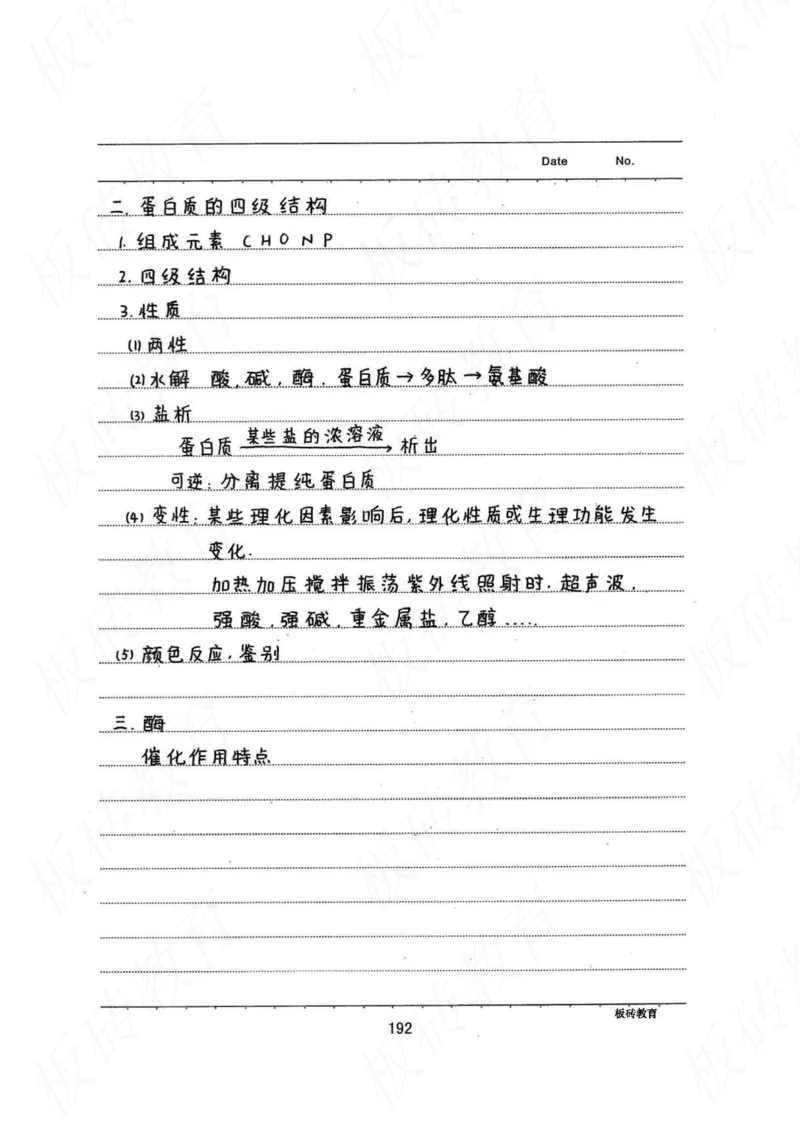 Date No.
二.蛋白质的四级结构
1.组成元素 C H O N P
2.四级结构
3.性质
(1)两性
(2)水解 酸,碱,酶.蛋白质→多肽→氨基酸
(3)盐析
某些盐的浓溶液
蛋白质 → 析出
可逆:分离提纯蛋白质
(4)变性:某些理化因素影响后,理化性质或生理功能发生
变化.
加热加压搅拌振荡紫外线照射时.超声波.
强酸.强碱.重金属盐.乙醇.....
(5)颜色反应,鉴别
三.酶
催化作用特点
板砖教育
192
板砖教育